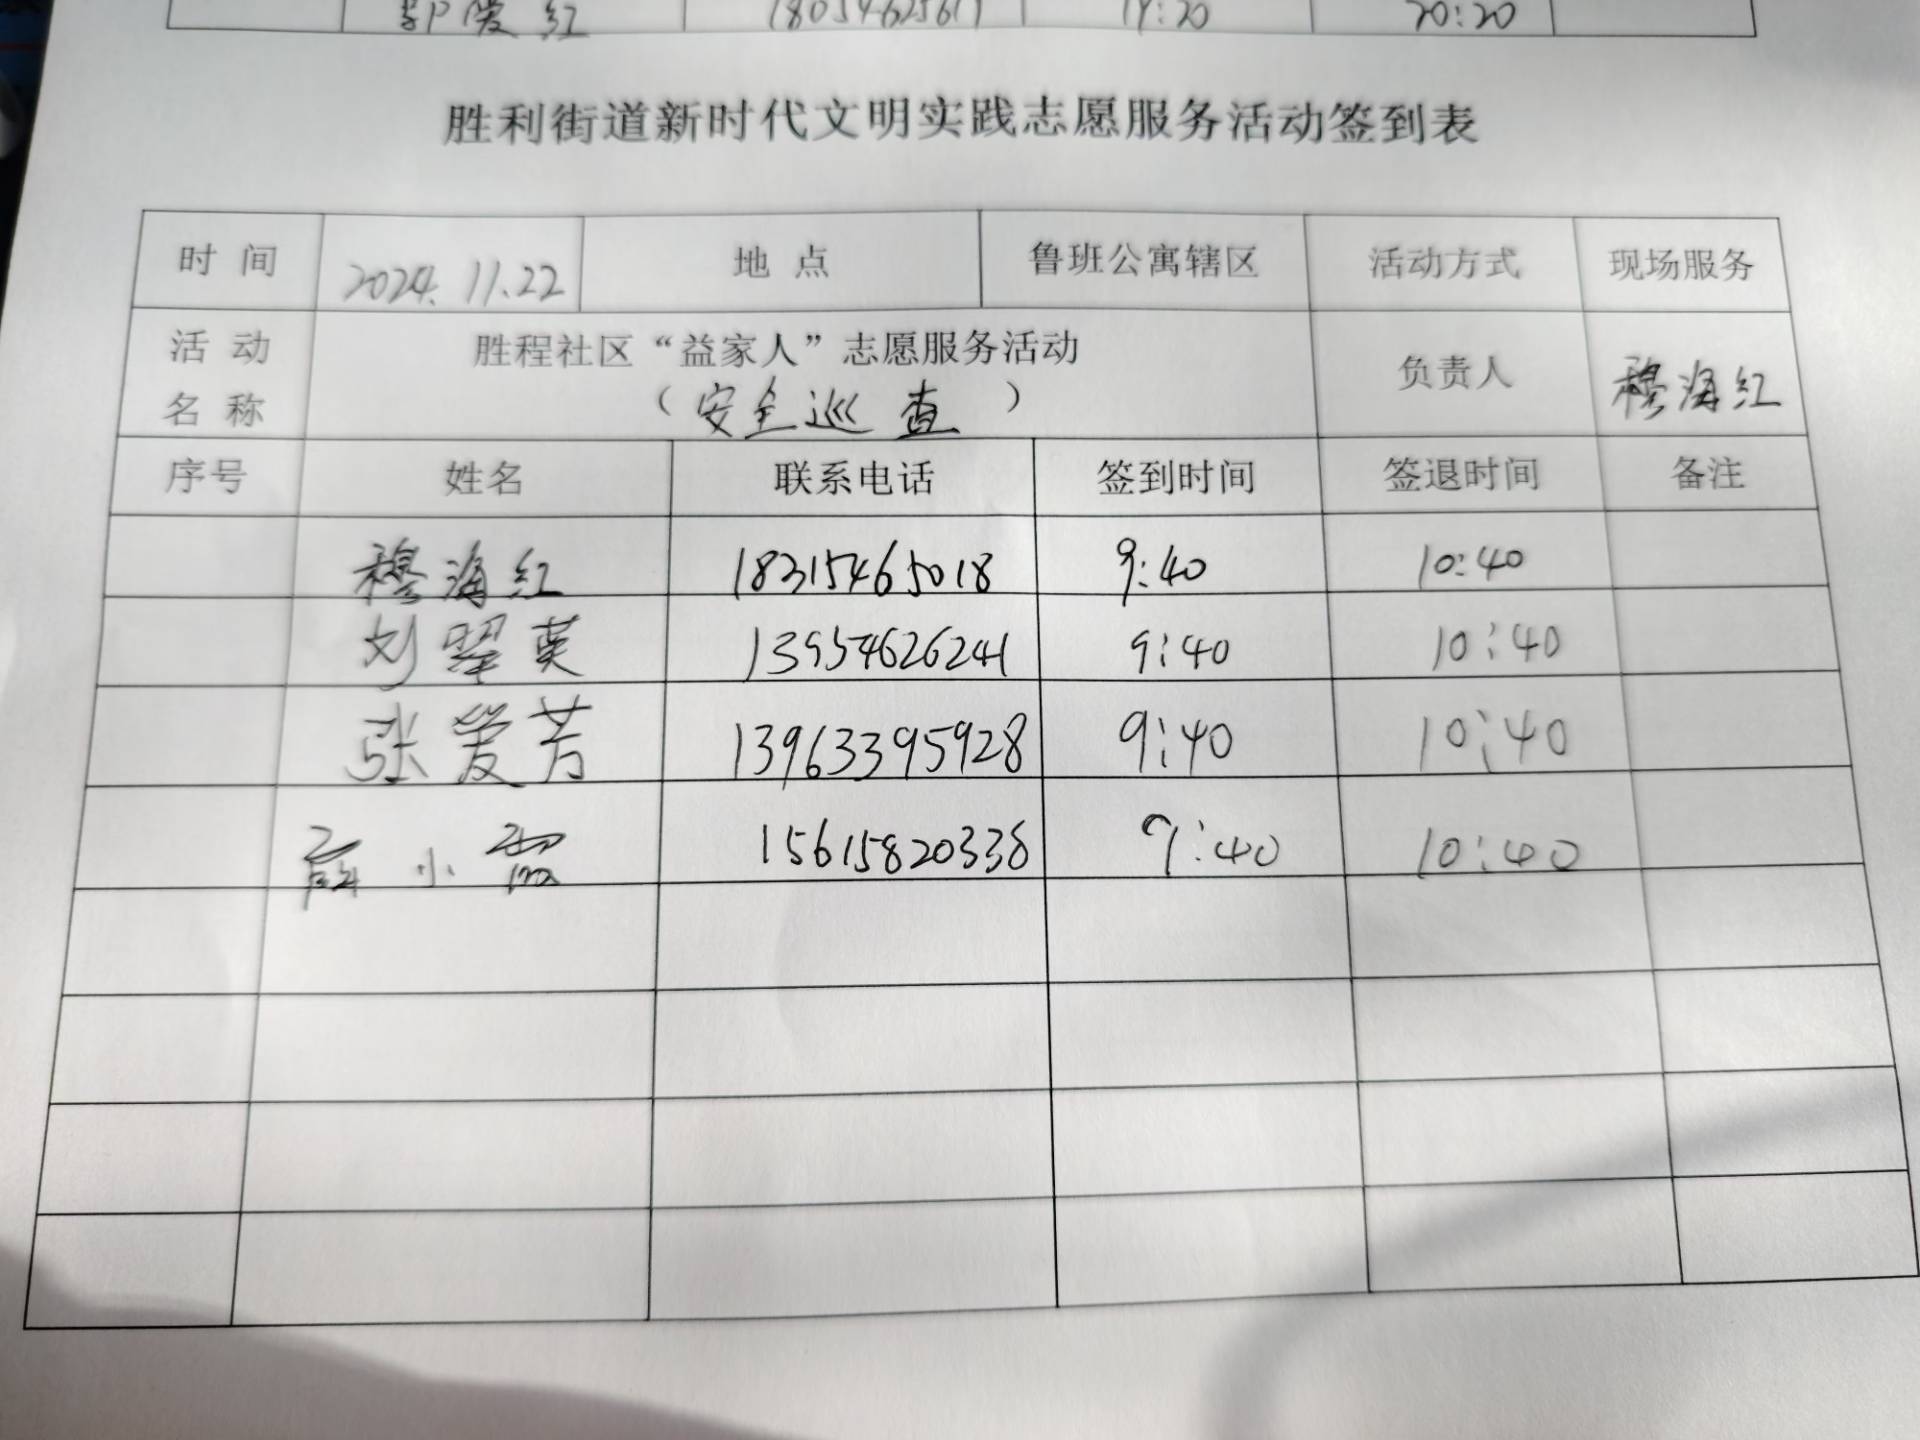 爱红 18054625617 19:20 20:20
胜利街道新时代文明实践志愿服务活动签到表
时 间 2024.11.22 地 点 鲁班公寓辖区 活动方式 现场服务
活 动 名 称 胜程社区“益家人”志愿服务活动 负责人 穆海红
（安全巡查）
序号 姓名 联系电话 签到时间 签退时间 备注
穆海红 18315465018 9:40 10:40
刘翠英 13954626241 9:40 10:40
张爱芳 13963395928 9:40 10:40
薛小霞 15615820338 9:40 10:40